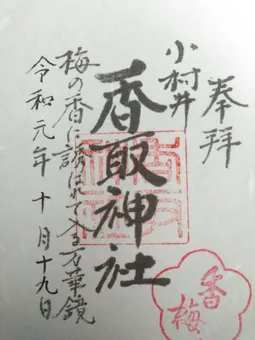 奉拝
小村井
香取神社
梅の香に誘はれてみる万華鏡
令和元年十月十九日
香梅